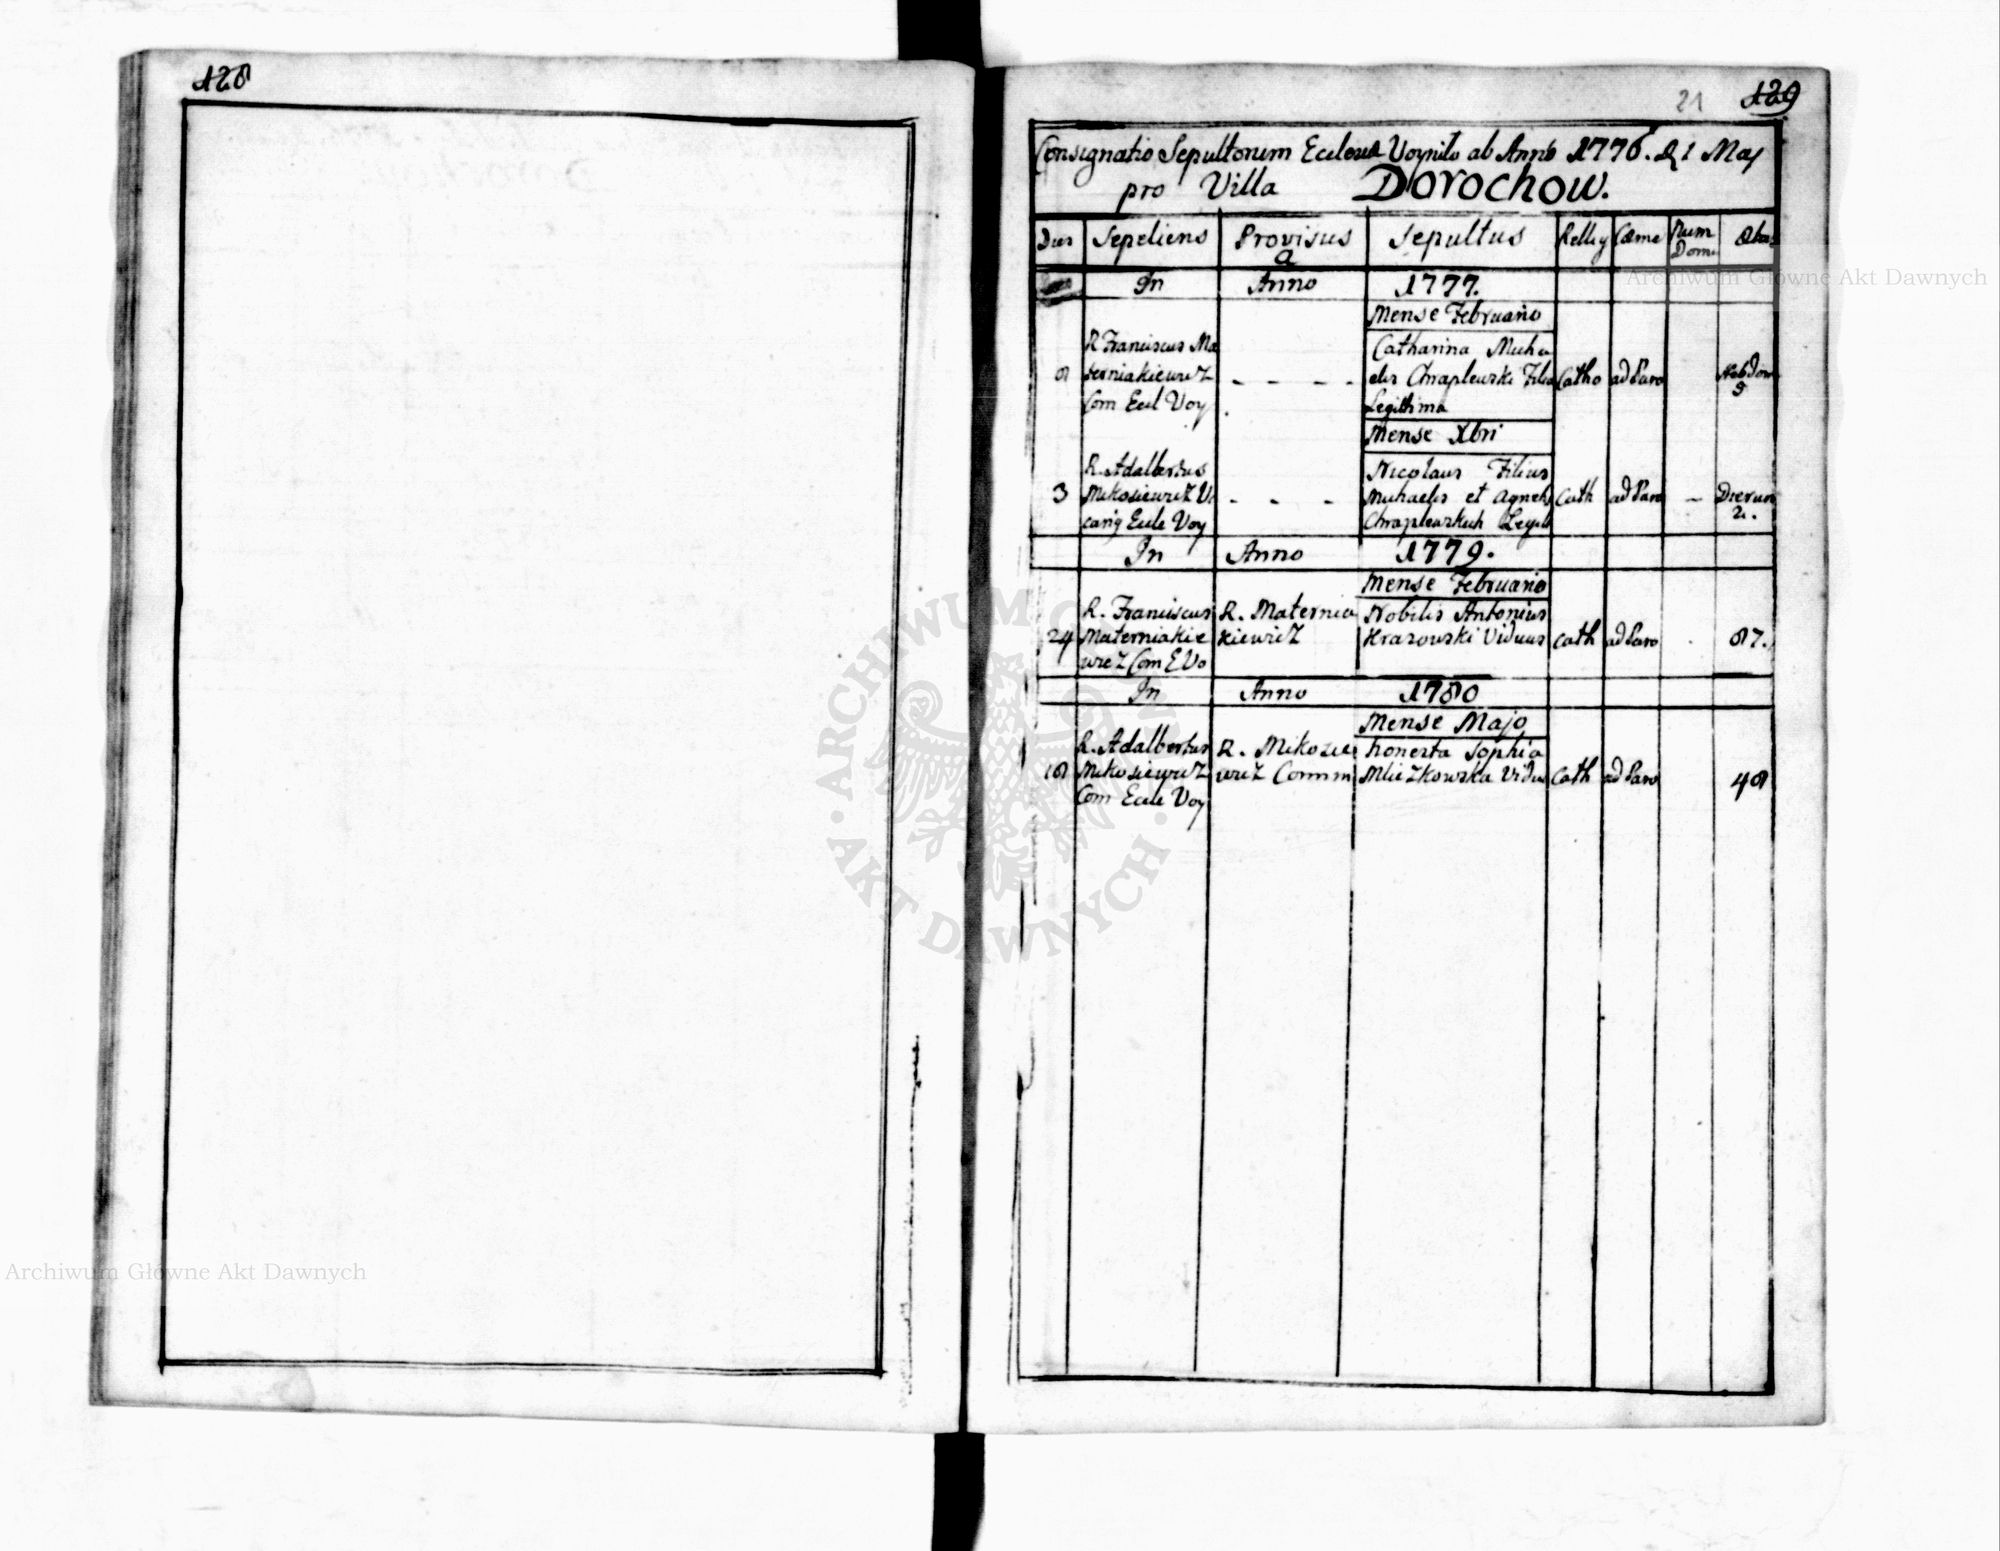 128
21 129
Consignatio Sepultorum Eccl Voynilo ab Anno 1776. d 1 Maj
pro Villa Dorochow.
Dies Sepeliens Provisus a Sepultus Relig Cæme Num Dom Ætas
In Anno 1777.
Mense Februario
R Franciscus Ma
terniakiewiz
Com Eccl Voy
8
- - - -
Catharina Micha
elis Chraplewski Filia
Legittima
Catho ad Paro Hebdom
5
Mense Xbri
3
R. Adalbertus
Mikosiewiz Vi
cariq Eccle Voy
- - -
Nicolaus Filius
Michaelis et Agnetis
Chraplewskich Legitt
Cath ad Paro - Dierum
2.
In Anno 1779.
Mense Februario
24
R. Franciscus
Materniakie
wiez Com E Vo
R. Maternia
kiewicz
Nobilis Antonius
Krasowski Viduus
Cath ad Paro 87.
In Anno 1780
Mense Majo
18
R. Adalbertus
Mikosiewicz
Com Eccle Voy
R. Mikosie
wicz Comm
honesta Sophia
Mliczkowska Vidua
Cath ad Paro 48
Archiwum Główne Akt Dawnych
ARCHIWUM GŁÓWNE
AKT DAWNYCH
Archiwum Główne Akt Dawnych